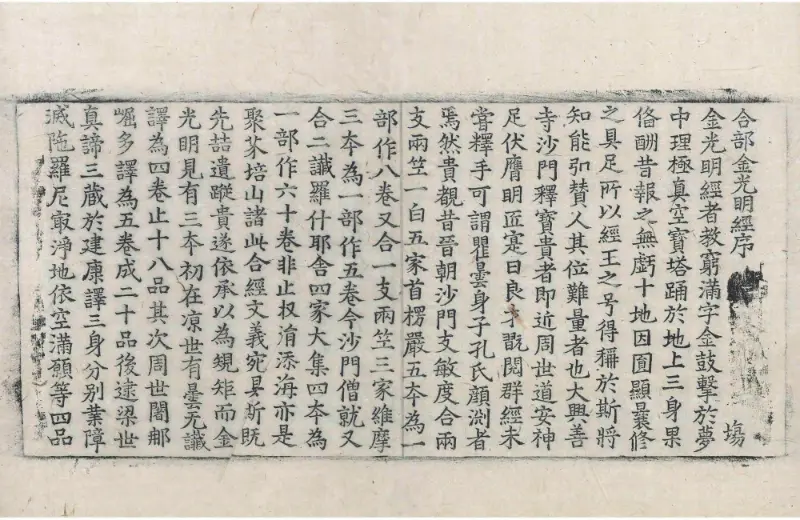 合部金光明經序 塲
金光明經者教窮滿字金鼓擊於夢
中理極真空寶塔踊於地上三身果
俻酬昔報之無虧十地因圎顯曩修
之具足所以經王之号得稱於斯將
知能弘賛人其位難量者也大興善
寺沙門釋寶貴者即近周世道安神
足伏膺明匠寔曰良才旣閱群經未
甞釋手可謂瞿曇身子孔氏顔淵者
焉然貴觀昔晉朝沙門支敏度合兩
支兩竺一白五家首楞嚴五本為一
部作八卷又合一支兩竺三家維摩
三本為一部作五卷今沙門僧就又
合二讖羅什耶舍四家大集四本為
一部作六十卷非止收涓添海亦是
聚芥培山諸此合經文義宛具斯旣
先喆遺蹤貴遂依承以為規矩而金
光明見有三本初在涼世有曇无讖
譯為四卷止十八品其次周世闍那
崛多譯為五卷成二十品後逮梁世
真諦三藏於建康譯三身分別業障
滅陁羅尼㝡淨地依空滿願等四品